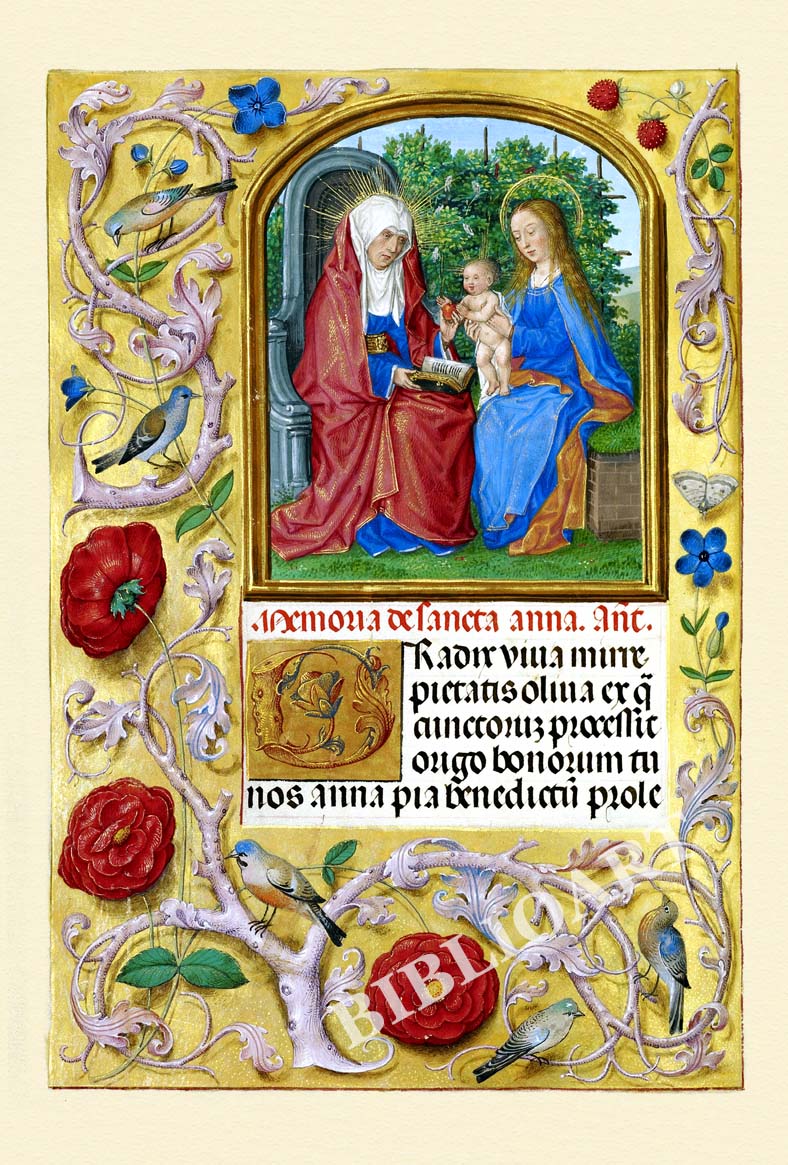 Memoria de sancta anna. Añt.
O Radix viua mirre
pietatis oliua ex q̃
cunctoruz processit
origo bonorum tu
nos anna pia benedictũ prole
BIBLIOART